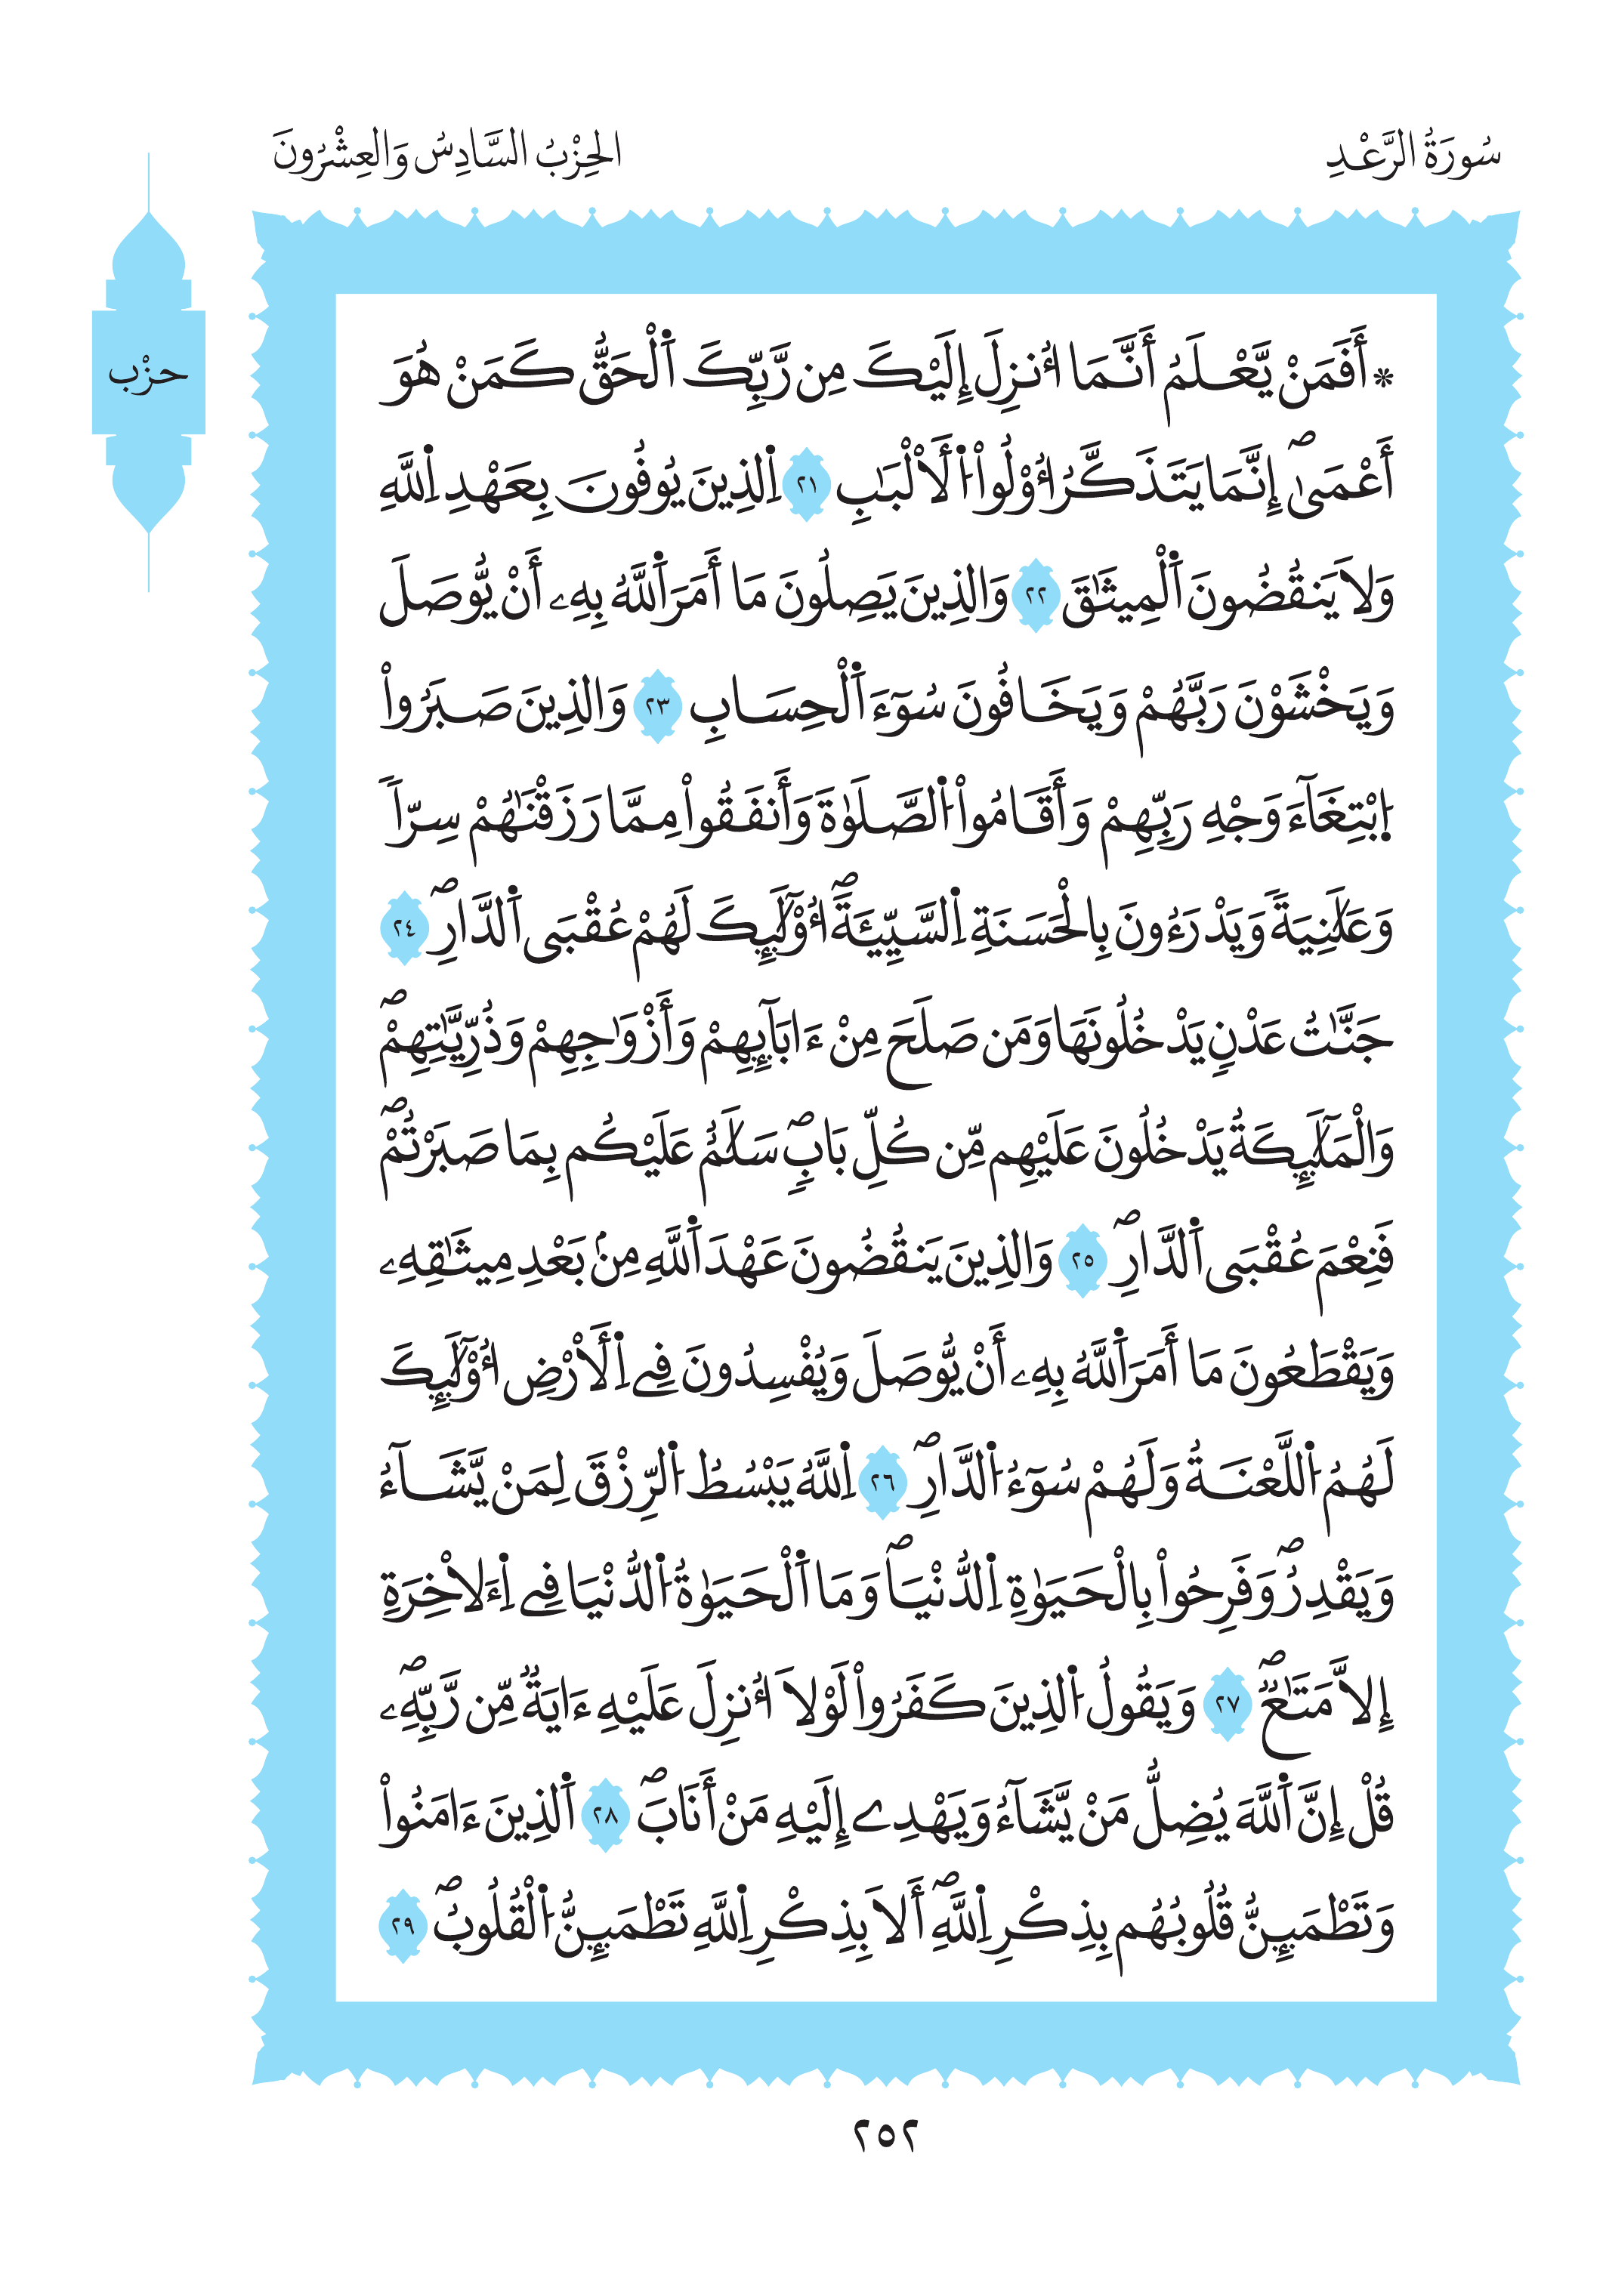 سُورَةُ الرَّعْدِ
الحِزْبُ السَّادِسُ وَالعِشْرُونَ
حِزْب
* أَفَمَنْ يَّعْلَمُ أَنَّمَا أُنزِلَ إِلَيْكَ مِن رَّبِّكَ اَ۬لْحَقُّ كَمَنْ هُوَ
أَعْم۪ىٰٓۖ إِنَّمَا يَتَذَكَّرُ أُوْلُواْ اُ۬لَالْبَٰبِ ٢١ اِ۬لذِينَ يُوفُونَ بِعَهْدِ اِ۬للَّهِ
وَلَا يَنقُضُونَ اَ۬لْمِيثَٰقَ ٢٢ وَالذِينَ يَصِلُونَ مَا أَمَرَ اَ۬للَّهُ بِهِۦ أَنْ يُّوصَلَ
وَيَخْشَوْنَ رَبَّهُمْ وَيَخَافُونَ سُوٓءَ اَ۬لْحِسَابِ ٢٣ وَالذِينَ صَبَرُواْ
اُ۪بْتِغَآءَ وَجْهِ رَبِّهِمْ وَأَقَامُواْ اُ۬لصَّلَوٰةَ وَأَنفَقُواْ مِمَّا رَزَقْنَٰهُمْ سِرّاٗ
وَعَلَٰنِيَةٗ وَيَدْرَءُونَ بِالْحَسَنَةِ اِ۬لسَّيِّئَةَۖ أُوْلَٰٓئِكَ لَهُمْ عُقْبَى اَ۬لدَّارِۖ ٢٤
جَنَّٰتُ عَدْنٖ يَدْخُلُونَهَا وَمَن صَلَحَ مِنْ ءَابَآئِهِمْ وَأَزْوَٰجِهِمْ وَذُرِّيَّٰتِهِمْۖ
وَالْمَلَٰٓئِكَةُ يَدْخُلُونَ عَلَيْهِم مِّن كُلِّ بَابٖۖ سَلَٰمٌ عَلَيْكُم بِمَا صَبَرْتُمْۖ
فَنِعْمَ عُقْبَى اَ۬لدَّارِۖ ٢٥ وَالذِينَ يَنقُضُونَ عَهْدَ اَ۬للَّهِ مِنۢ بَعْدِ مِيثَٰقِهِۦ
وَيَقْطَعُونَ مَا أَمَرَ اَ۬للَّهُ بِهِۦ أَنْ يُّوصَلَ وَيُفْسِدُونَ فِے اِ۬لَارْضِ أُوْلَٰٓئِكَ
لَهُمُ اُ۬للَّعْنَةُ وَلَهُمْ سُوٓءُ اُ۬لدَّارِۖ ٢٦ اِ۬للَّهُ يَبْسُطُ اُ۬لرِّزْقَ لِمَنْ يَّشَآءُ
وَيَقْدِرُۖ وَفَرِحُواْ بِالْحَيَوٰةِ اِ۬لدُّنْيَاۖ وَمَا اَ۬لْحَيَوٰةُ اُ۬لدُّنْيَا فِے اِ۬ءَلَاخِرَةِ
إِلَّا مَتَٰعٞۖ ٢٧ وَيَقُولُ اُ۬لذِينَ كَفَرُواْ لَوْلَا أُنزِلَ عَلَيْهِ ءَايَةٞ مِّن رَّبِّهِۦۖ
قُلْ إِنَّ اَ۬للَّهَ يُضِلُّ مَنْ يَّشَآءُ وَيَهْدِے إِلَيْهِ مَنْ أَنَابَۖ ٢٨ اَ۬لذِينَ ءَامَنُواْ
وَتَطْمَئِنُّ قُلُوبُهُم بِذِكْرِ اِ۬للَّهِۖ أَلَا بِذِكْرِ اِ۬للَّهِ تَطْمَئِنُّ اُ۬لْقُلُوبُۖ ٢٩
٢٥٢